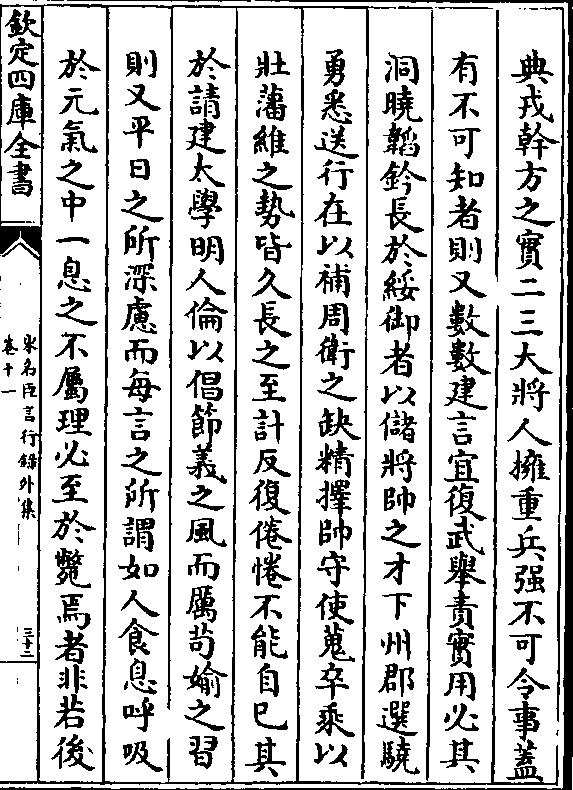 典戎幹方之實二三大將人擁重兵强不可令事蓋
有不可知者則又數數建言宜復武舉責實用必其
洞曉韜鈐長於綏御者以儲將帥之才下州郡選驍
勇悉送行在以補周衛之缺精擇帥守使蒐卒乘以
壯藩維之勢皆久長之至計反復倦惓不能自已其
於請建太學明人倫以倡節義之風而厲苟婾之習
則又平日之所深慮而每言之所謂如人食息呼吸
於元氣之中一息之不屬理必至於斃焉者非若後
欽定四庫全書
宋名臣言行錄外集
卷十一
三十二